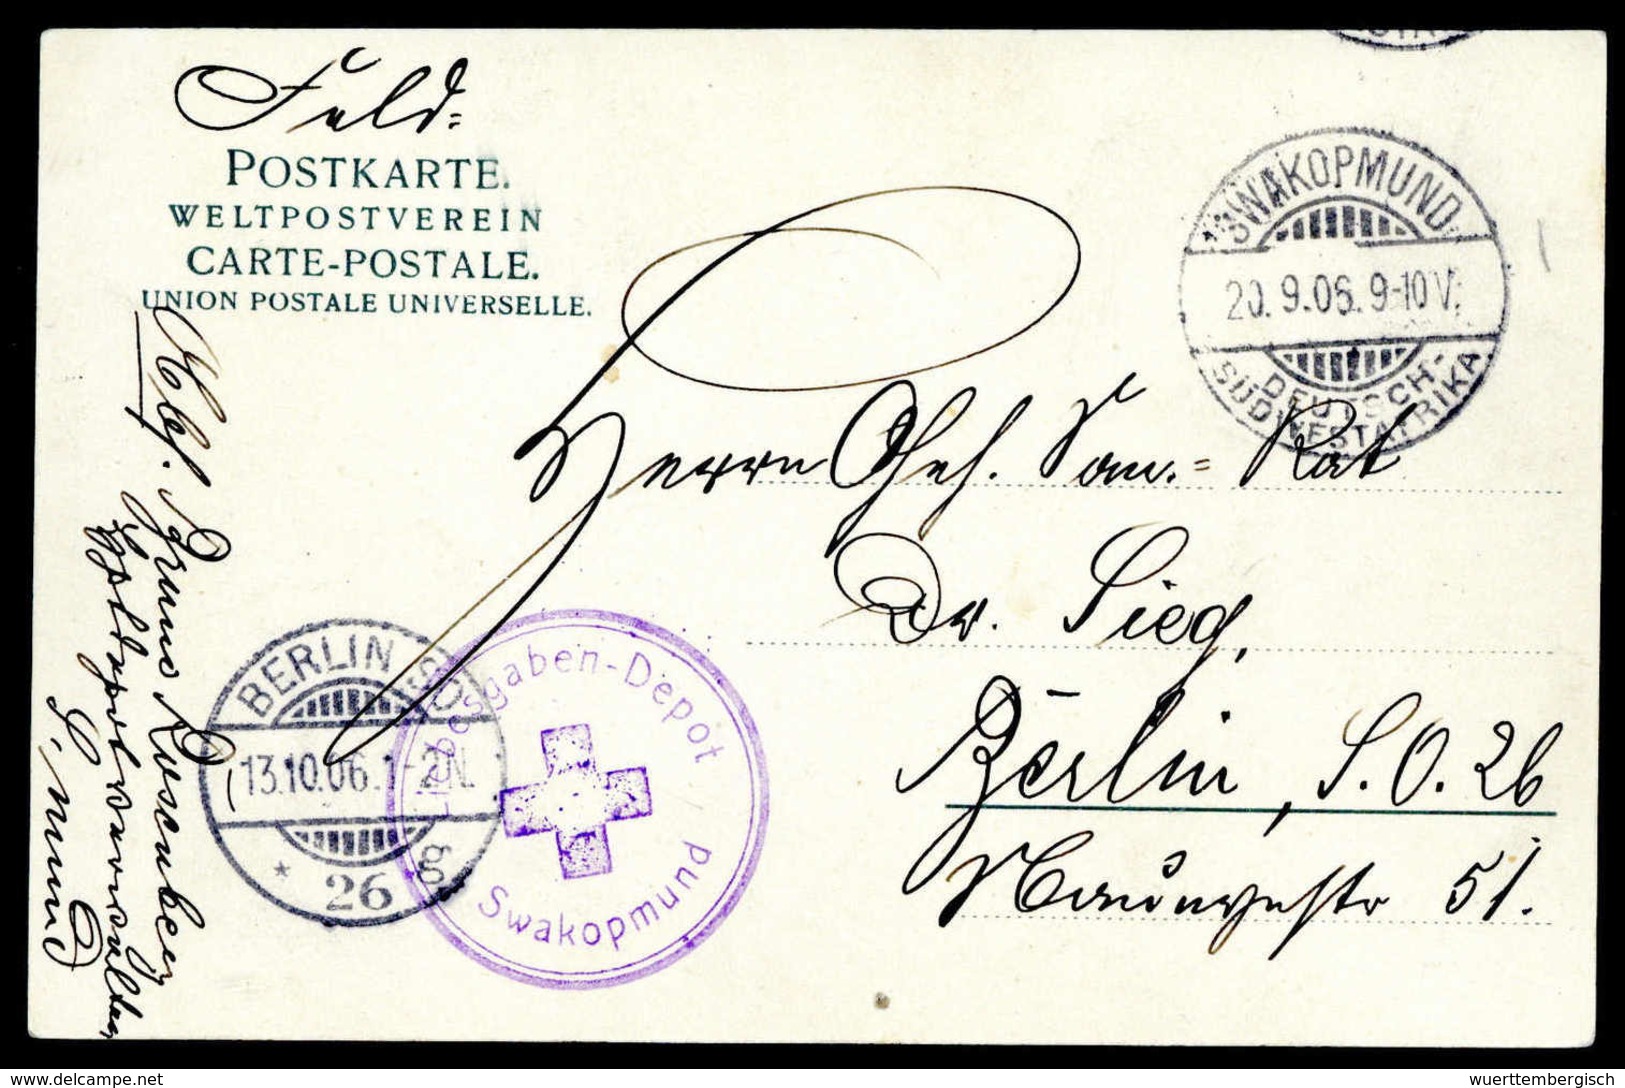 Feld=
POSTKARTE.
WELTPOSTVEREIN
CARTE-POSTALE.
UNION POSTALE UNIVERSELLE.
SWAKOPMUND
20.9.06. 9-10V.
DEUTSCH-
SÜDWESTAFRIKA
Herrn Geh. San.= Rat
Dr. Sieg,
Berlin, S.O. 26
Naunynstr 51.
BERLIN SO
13.10.06. 1-2N.
* 26 g
Liebesgaben-Depot
Swakopmund
Abs. Bruno
D.
S,mund
delcampe.net
wuerttembergisch